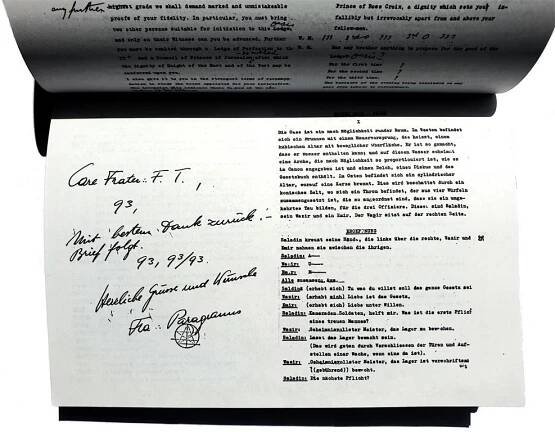 any further
hight grade we shall demand marked and unmistakeable
proofs of your fidelity. In particular, you must bring
two other persons suitable for initiation to this Lodge,
and only on their Witness can you be advanced. Further
you must be exalted through a Lodge of Perfection to the
and a Council of Princes of Jerusalem after which
the dignity of Knight of the East and of the West may be
conferred upon you.
Prince of Rose Croix, a dignity which sets you in-
fallibly but irrevocably apart from and above your
fellow-men.
W. M.
Has any brother anything to propose for the good of the
Lodge
For the first time
For the second time
For the third time
Care Frater∴ F. T.,
93,
Mit besten Dank zurück! –
Brief folgt.
93, 93/93.
Herzliche Grüsse und Wünsche
Fra∴ Paragranus
I
Die Oase ist ein nach Möglichkeit runder Raum. Im Westen befindet
sich ein Brunnen mit einem Wasservorsprung, das heisst, einem
kubischen Altar mit beweglicher Oberfläche. Er ist so gemacht,
dass er Wasser enthalten kann; und auf diesem Wasser schwimmt
eine Arche, die nach Möglichkeit so proportioniert ist, wie es
im Canon angegeben ist und einen Dolch, einen Diskus und das
Gesetzbuch enthält. Im Osten befindet sich ein zylindrischer
Altar, worauf eine Kerze brennt. Dies wird beschattet durch ein
konisches Zelt, wo sich ein Thron befindet, der aus vier Würfeln
zusammengesetzt ist, die so angeordnet sind, dass sie ein umge-
kehrtes Tau bilden, für die drei Offiziere. Diese: sind Saladin,
sein Wazir und ein Emir. Der Wazir sitzt auf der rechten Seite.
EROEFFNUNG
Saladin kreuzt seine Hände, die linke über die rechte, Wazir und
Emir nehmen sie zwischen die ihrigen.
Saladin: A——
Wazir: U——
Emir: M——
Alle zusammen: Aum.
Saladin: (erhebt sich) Tu was du willst soll das ganze Gesetz sein
Wazir: (erhebt sich) Liebe ist das Gesetz,
Emir: (erhebt sich) Liebe unter Willen.
Saladin: Kameraden-Soldaten, helft mir. Was ist die erste Pflicht
eines treuen Mannes?
Wazir: Geheimnisvollster Meister, das Lager zu bewachen.
Saladin: Lasst das Lager bewacht sein.
(Das wird getan durch Verschliessen der Türen und Auf-
stellen einer Wache, wenn eine da ist).
Wazir: Geheimnisvollster Meister, das Lager ist
(gebührend) bewacht.
Saladin: Die nächste Pflicht?